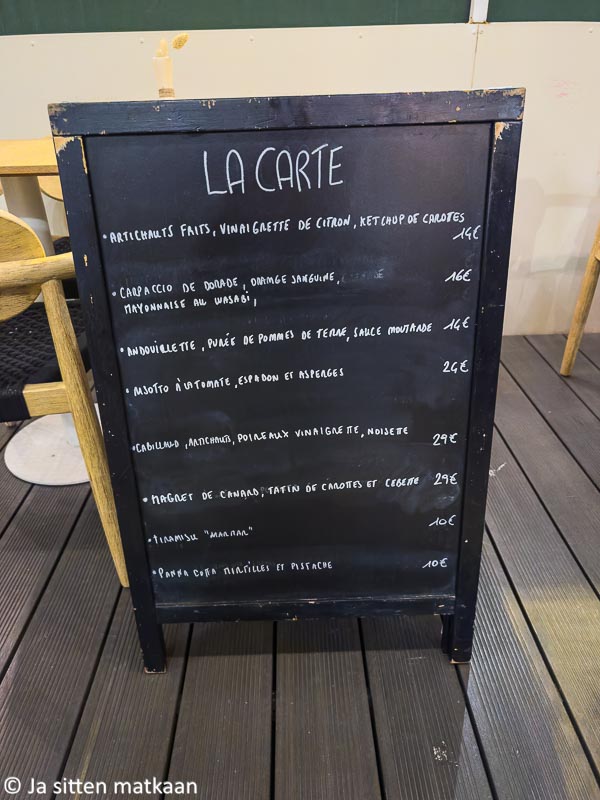 LA CARTE
• ARTICHAUTS FRITS, VINAIGRETTE DE CITRON, KETCHUP DE CAROTTES
14€
• CARPACCIO DE DORADE, ORANGE SANGUINE, 16€
MAYONNAISE AU WASABI,
• ANDOUILLETTE, PURÉE DE POMMES DE TERRE, SAUCE MOUTARDE 14€
• RISOTTO À LA TOMATE, ESPADON ET ASPERGES 24€
• CABILLAUD, ARTICHAUTS, POIREAUX VINAIGRETTE, NOISETTE 29€
• MAGRET DE CANARD, TATIN DE CAROTTES ET CEBETTE 29€
• TIRAMISU "MARMAR" 10€
• PANNA COTTA MIRTILLES ET PISTACHE 10€
© Ja sitten matkaan